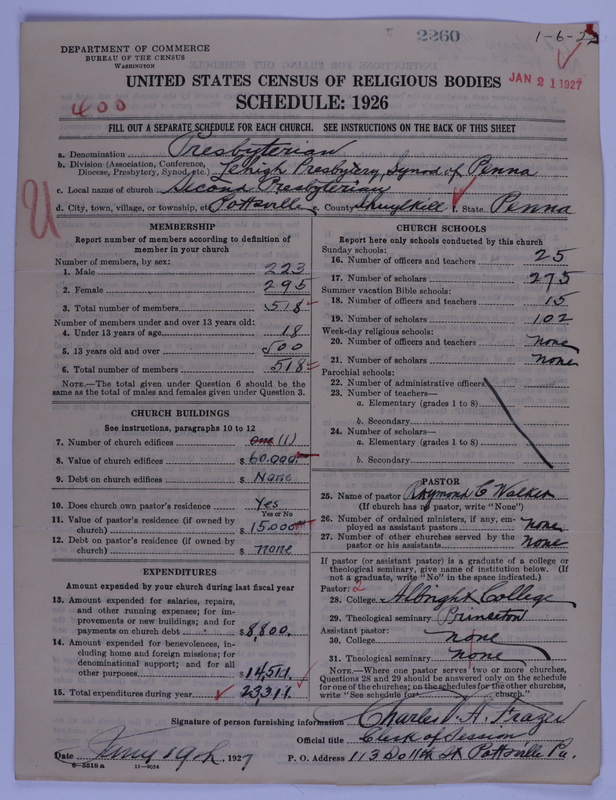 2260
1-6-22
DEPARTMENT OF COMMERCE
BUREAU OF THE CENSUS
WASHINGTON
UNITED STATES CENSUS OF RELIGIOUS BODIES
JAN 21 1927
400
SCHEDULE: 1926
FILL OUT A SEPARATE SCHEDULE FOR EACH CHURCH. SEE INSTRUCTIONS ON THE BACK OF THIS SHEET
a. Denomination Presbyterian
b. Division (Association, Conference, Diocese, Presbytery, Synod, etc.) Lehigh Presbytery, Synod of Penna
c. Local name of church Second Presbyterian
d. City, town, village, or township, etc. Pottsville e. County Schuylkill f. State Penna
MEMBERSHIP
Report number of members according to definition of
member in your church
Number of members, by sex:
1. Male 223
2. Female 295
3. Total number of members 518
Number of members under and over 13 years old:
4. Under 13 years of age 18
5. 13 years old and over 500
6. Total number of members 518
NOTE.—The total given under Question 6 should be the
same as the total of males and females given under Question 3.
CHURCH BUILDINGS
See instructions, paragraphs 10 to 12
7. Number of church edifices One (1)
8. Value of church edifices $ 60.000
9. Debt on church edifices $ None
10. Does church own pastor's residence Yes
Yes or No
11. Value of pastor's residence (if owned by
church) $ 15.000
12. Debt on pastor's residence (if owned by
church) $ none
EXPENDITURES
Amount expended by your church during last fiscal year
13. Amount expended for salaries, repairs,
and other running expenses; for im-
provements or new buildings; and for
payments on church debt $ 8,800.
14. Amount expended for benevolences, in-
cluding home and foreign missions; for
denominational support; and for all
other purposes $ 14,511.
15. Total expenditures during year 23,311
CHURCH SCHOOLS
Report here only schools conducted by this church
Sunday schools:
16. Number of officers and teachers 25
17. Number of scholars 275
Summer vacation Bible schools:
18. Number of officers and teachers 15
19. Number of scholars 102
Week-day religious schools:
20. Number of officers and teachers none
21. Number of scholars none
Parochial schools:
22. Number of administrative officers
23. Number of teachers—
a. Elementary (grades 1 to 8)
b. Secondary
24. Number of scholars—
a. Elementary (grades 1 to 8)
b. Secondary
PASTOR
25. Name of pastor Raymond C Walker
(If church has no pastor, write "None")
26. Number of ordained ministers, if any, em-
ployed as assistant pastors none
27. Number of other churches served by the
pastor or his assistants none
If pastor (or assistant pastor) is a graduate of a college or
theological seminary, give name of institution below. (If
not a graduate, write "No" in the space indicated.)
Pastor: 2
28. College Albright College
29. Theological seminary Princeton
Assistant pastor:
30. College none
31. Theological seminary none
NOTE.—Where one pastor serves two or more churches,
Questions 28 and 29 should be answered only on the schedule
for one of the churches; on the schedules for the other churches,
write "See schedule for church."
Signature of person furnishing information Charles A. Frazer
Official title Clerk of Session
Date 19th, 1927
P. O. Address 113 So 11th St Pottsville Pa.
8-5518a 11-9034